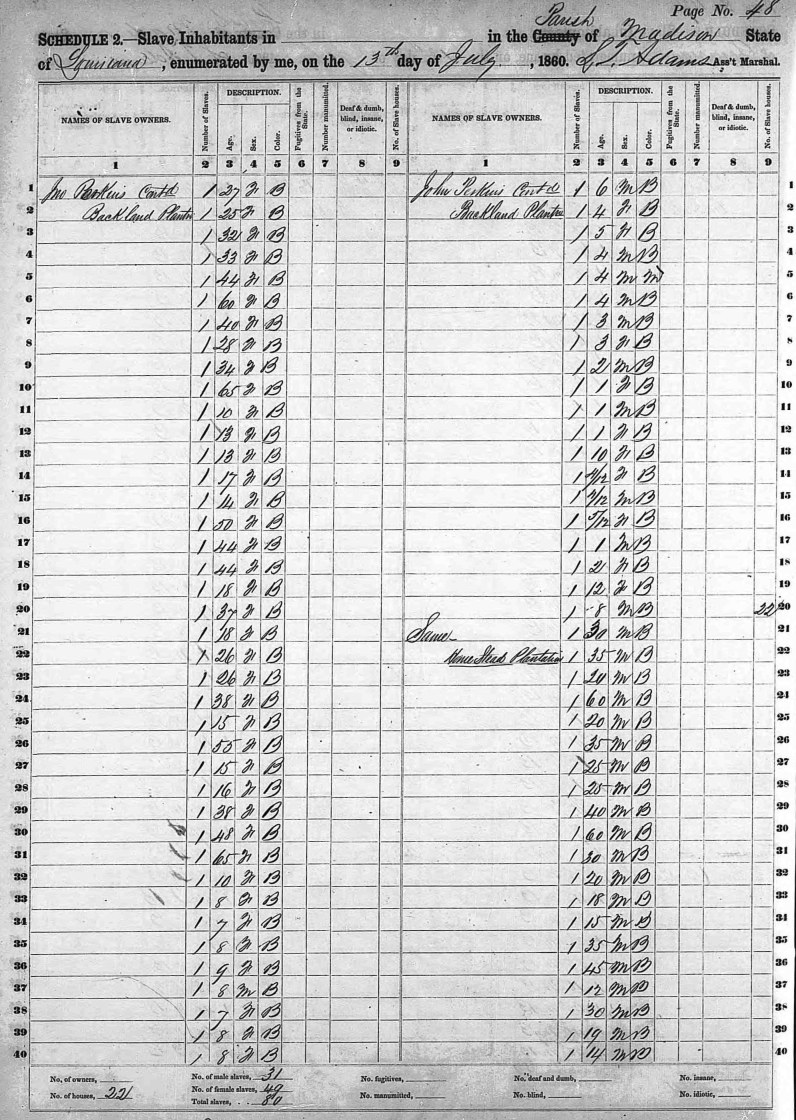 Page No. 48
SCHEDULE 2.—Slave Inhabitants in in the County Parish of Madison State
of Louisiana, enumerated by me, on the 13th day of July, 1860. Adams Ass't Marshal.
NAMES OF SLAVE OWNERS. Number of Slaves. DESCRIPTION. Age. Sex. Color. Fugitives from the State. Number manumitted. Deaf & dumb, blind, insane, or idiotic. No. of Slave houses. NAMES OF SLAVE OWNERS. Number of Slaves. DESCRIPTION. Age. Sex. Color. Fugitives from the State. Number manumitted. Deaf & dumb, blind, insane, or idiotic. No. of Slave houses.
1 2 3 4 5 6 7 8 9 1 2 3 4 5 6 7 8 9
1 Jno Perkins Contd 1 27 F B John Perkins Contd 1 6 M B 1
2 Backland Plantn 1 25 F B Backland Plantn 1 4 F B 2
3 1 32 F B 1 5 F B 3
4 1 33 F B 1 4 M B 4
5 1 44 F B 1 4 M M 5
6 1 60 F B 1 4 M B 6
7 1 40 F B 1 3 M B 7
8 1 28 F B 1 3 F B 8
9 1 34 F B 1 2 M B 9
10 1 65 F B 1 1 F B 10
11 1 10 F B 1 1 M B 11
12 1 13 F B 1 1 F B 12
13 1 13 F B 1 10 F B 13
14 1 17 F B 1 /12 F B 14
15 1 14 F B 1 /12 M B 15
16 1 50 F B 1 5/12 F B 16
17 1 44 F B 1 1 M B 17
18 1 44 F B 1 2 F B 18
19 1 18 F B 1 12 F B 19
20 1 37 F B 1 8 M B 22 20
21 1 18 F B Same 1 30 M B 21
22 1 26 F B Home Stead Plantation 1 35 M B 22
23 1 26 F B 1 20 M B 23
24 1 38 F B 1 60 M B 24
25 1 15 F B 1 20 M B 25
26 1 55 F B 1 35 M B 26
27 1 15 F B 1 25 M B 27
28 1 16 F B 1 25 M B 28
29 1 38 F B 1 40 M B 29
30 1 48 F B 1 60 M B 30
31 1 65 F B 1 30 M B 31
32 1 10 F B 1 20 M B 32
33 1 8 F B 1 18 M B 33
34 1 7 F B 1 15 M B 34
35 1 8 F B 1 35 M B 35
36 1 9 F B 1 45 M B 36
37 1 8 M B 1 12 M B 37
38 1 7 F B 1 30 M B 38
39 1 8 F B 1 19 M B 39
40 1 8 F B 1 14 M B 40
No. of owners, No. of male slaves, 31 No. fugitives, No. deaf and dumb, No. insane,
No. of houses, 22 No. of female slaves, 49 No. manumitted, No. blind, No. idiotic,
Total slaves, 80